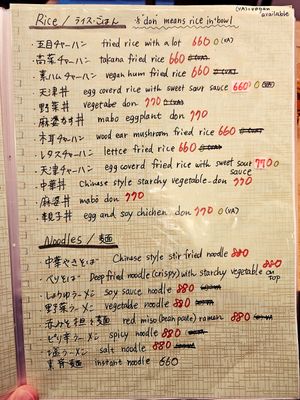 (VA)=vegan available
Rice / ライス・ごはん ※"don" means rice in bowl
五目チャーハン fried rice with a lot 660 O (VA)
高菜チャーハン takana fried rice 660
素ハムチャーハン vegan hum fried rice 660
天津丼 egg coverd rice with sweet sour sauce 660 O
野菜丼 vegetabe don 770
麻婆ナす丼 mabo eggplant don 770
木耳チャーハン wood ear mushroom fried rice 660
レタスチャーハン lettce fried rice 660
天津チャーハン egg coverd fried rice with sweet sour sauce 770 O
中華丼 Chinese style starchy vegetable don 770
麻婆丼 mabo don 770
親子丼 egg and soy chicken don 770 O (VA)
Noodles / 麺
中華やきそば Chinese style stir fried noodle 880
Deep fried noodle (crispy) with starchy vegetable on top 880
しょうゆラーメン soy sauce noodle 880
野菜ラーメン vegetable noodle 880
赤みそ担々麺 red miso (bean paste) ramen 880
ピリ辛ラーメン spicy noodle 880
塩ラーメン salt noodle 880
instant noodle 660